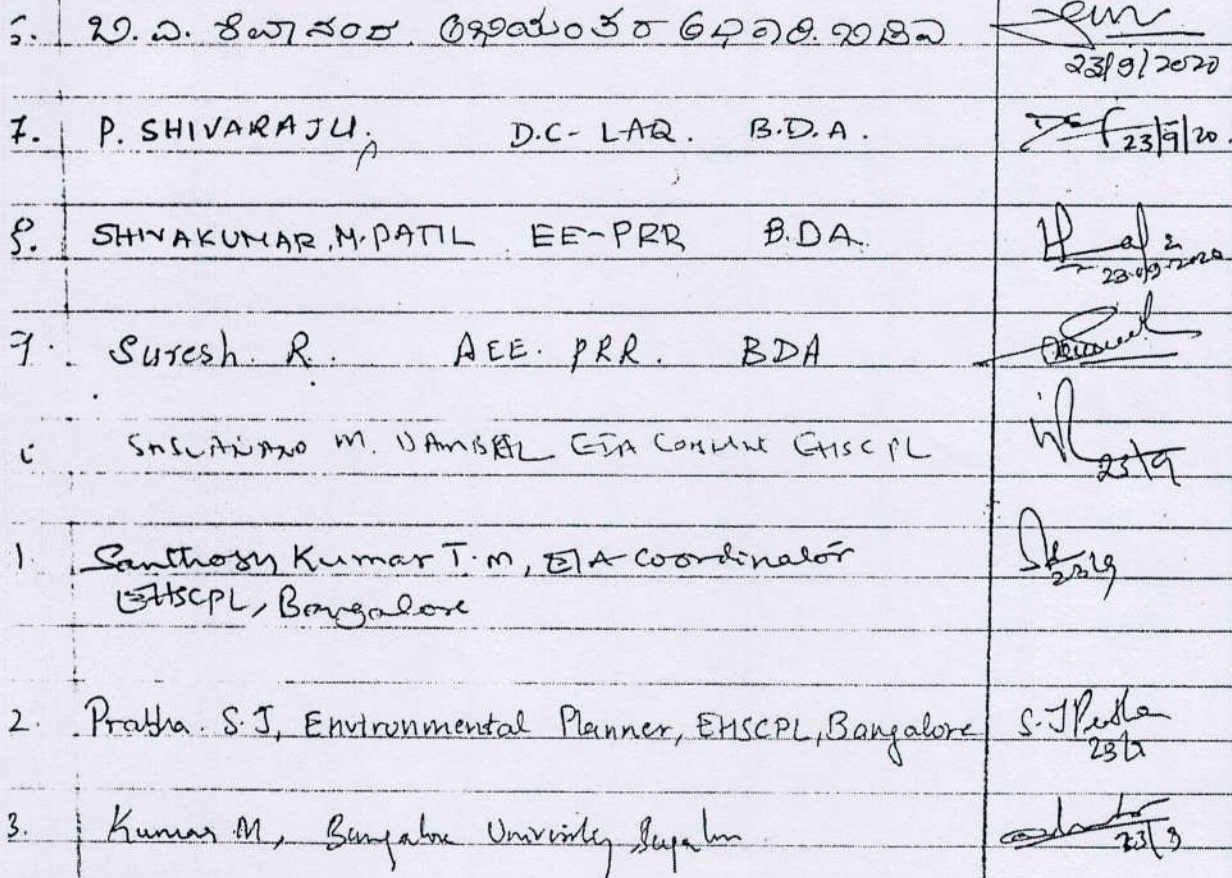 ಬಿ.ಎ. ಶಿವಾನಂದ ಅಭಿಯಂತರ ಅಧಿಕಾರಿ. ಬಿಡಿಎ
23/9/2020
7. P. SHIVARAJU. D.C- LAQ. B.D.A.
23/9/20.
8. SHIVAKUMAR.M.PATIL EE-PRR B.DA.
23-09-2020
9. Suresh. R. AEE. PRR. BDA
M. EIA EHSCPL
23/9
1 Santhosh Kumar T.M, EIA Coordinator
EHSCPL, Bangalore
23/9
2. Pratha. S.J, Environmental Planner, EHSCPL, Bangalore
S.J
23/9
3. Kumar M, Bangalore University
23/9